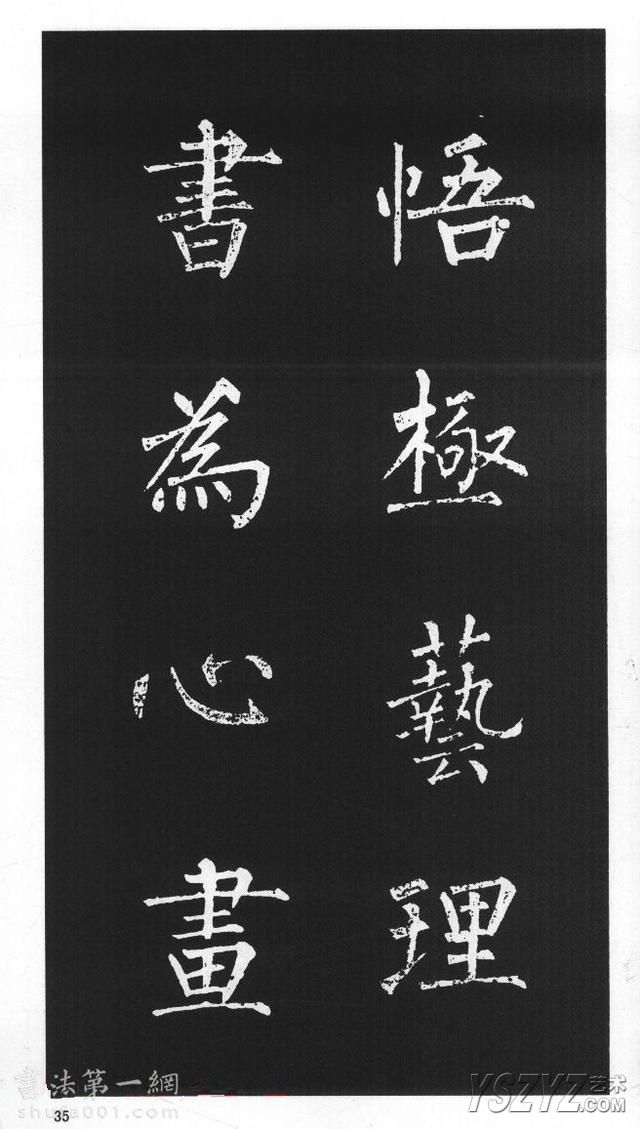 悟極藝理
書為心畫
書法第一網
shufa001.com
35
YSZYZ艺术
.COM